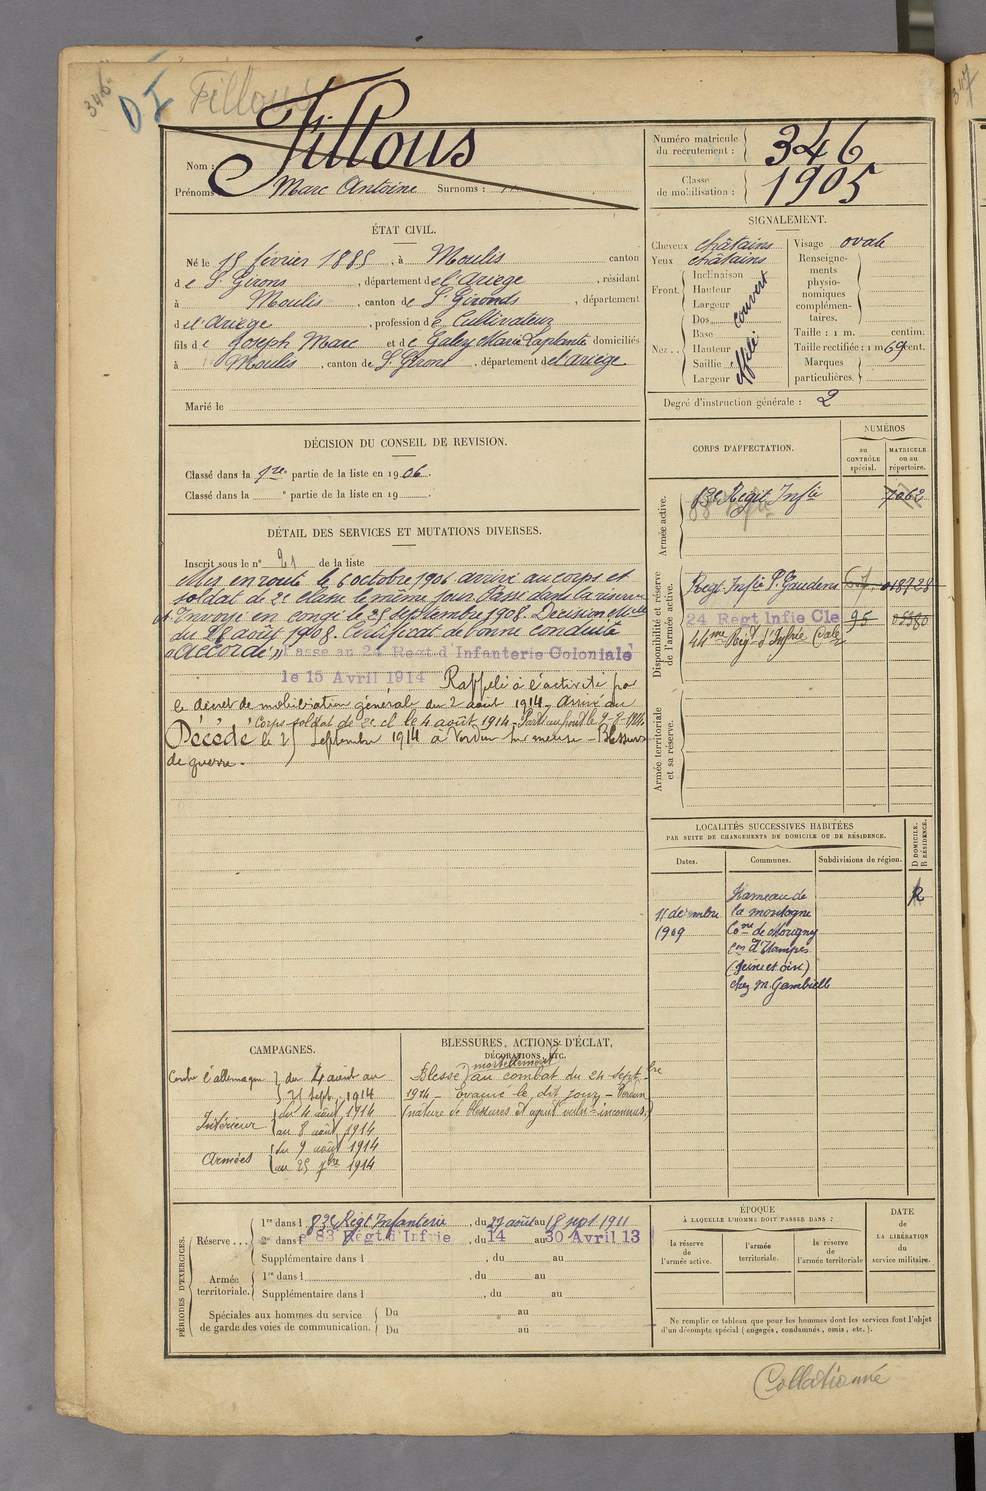 346
DI Fillous
Nom : Fillous
Prénoms : Marc Antoine Surnoms :
Numéro matricule du recrutement : 346
Classe de mobilisation : 1905
ÉTAT CIVIL.
Né le 18 février 1885, à Moulis canton
de St Girons, département de l'Ariège, résidant
à Moulis, canton de St Girons, département
de l'Ariège, profession de Cultivateur
fils de Joseph Marc et de Galey Marie Laplante domiciliés
à Moulis, canton de St Girons, département de l'Ariège
Marié le
SIGNALEMENT.
Cheveux châtains
Yeux châtains
Front. Inclinaison
Hauteur
Largeur
couvert
Nez.. Dos
Base
Hauteur
Saillie
Largeur
effilé
Visage ovale
Renseignements physionomiques complémentaires.
Taille : 1 m. centim.
Taille rectifiée : 1 m 69 cent.
Marques particulières.
Degré d'instruction générale : 2
DÉCISION DU CONSEIL DE REVISION.
Classé dans la 1re partie de la liste en 1906.
Classé dans la e partie de la liste en 19
DÉTAIL DES SERVICES ET MUTATIONS DIVERSES.
Inscrit sous le n° 21 de la liste
Mis en route le 6 octobre 1906 arrivé au corps et
soldat de 2e classe le même jour. Passé dans la réserve
Envoyé en congé le 25 septembre 1908. Décision Mlle
du 28 août 1908. Certificat de bonne conduite
"Accordé" Passé au 24 Regt d'Infanterie Coloniale
le 15 Avril 1914 Rappelé à l'activité par
le décret de mobilisation générale du 2 août 1914. Arrivé au
Corps soldat de 2e cl le 4 août 1914. Parti au front le 9-8-1914.
Décédé le 25 septembre 1914 à Verdun sur meuse - Blessures
de guerre.
CORPS D'AFFECTATION.
NUMÉROS
au CONTRÔLE spécial.
MATRICULE ou au répertoire.
Armée active.
83e Regit Infie 7062
Disponibilité et réserve de l'armée active.
Regt. Infie St Gaudens 018728
24 Regt Infie Cle 95 05580
44me Rég. d'Infrie Colale
Armée territoriale et sa réserve.
LOCALITÉS SUCCESSIVES HABITÉES
PAR SUITE DE CHANGEMENTS DE DOMICILE OU DE RÉSIDENCE.
Dates. Communes. Subdivisions de région. D DOMICILE. R RÉSIDENCE.
Hameau de R
11 décembre la montagne
1909 Cne de Morigny
con d'Etampes
(Seine et Oise)
chez M. Gambielle
CAMPAGNES.
Contre l'allemagne du 4 août au
25 sept. 1914
Intérieur du 4 août 1914
au 8 août 1914
Armées du 9 août 1914
au 25 7bre 1914
BLESSURES, ACTIONS D'ÉCLAT,
DÉCORATIONS, ETC.
mortellement
Blessé au combat du 24 Septbre
1914 - Evacué le dit jour - Verdun
(nature de blessures et agent vuln- inconnus)
PÉRIODES D'EXERCICES.
Réserve ... 1re dans l 83e Régt Infanterie, du 27 août au 18 sept. 1911
2e dans l e 83 Regt d'Infrie, du 14 au 30 Avril 13
Supplémentaire dans l , du au
Armée territoriale. 1re dans l , du au
Supplémentaire dans l , du au
Spéciales aux hommes du service de garde des voies de communication. Du au
Du au
ÉPOQUE
À LAQUELLE L'HOMME DOIT PASSER DANS :
la réserve de l'armée active.
l'armée territoriale.
la réserve de l'armée territoriale
DATE de LA LIBÉRATION du service militaire.
Ne remplir ce tableau que pour les hommes dont les services font l'objet
d'un décompte spécial (engagés, condamnés, omis, etc.).
Collationné